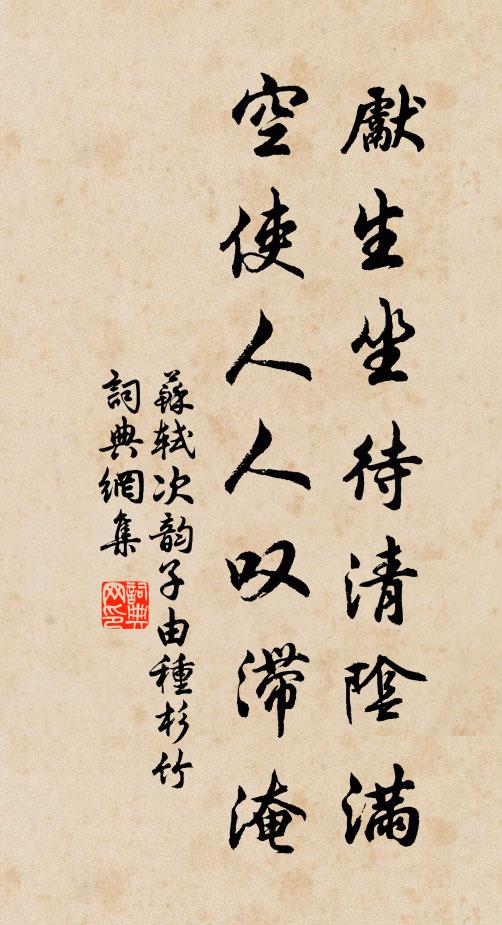 獻生坐待清陰滿
空使人人叹滯淹
蘇軾次韵子由種杉竹
詞典網集
詞典网印